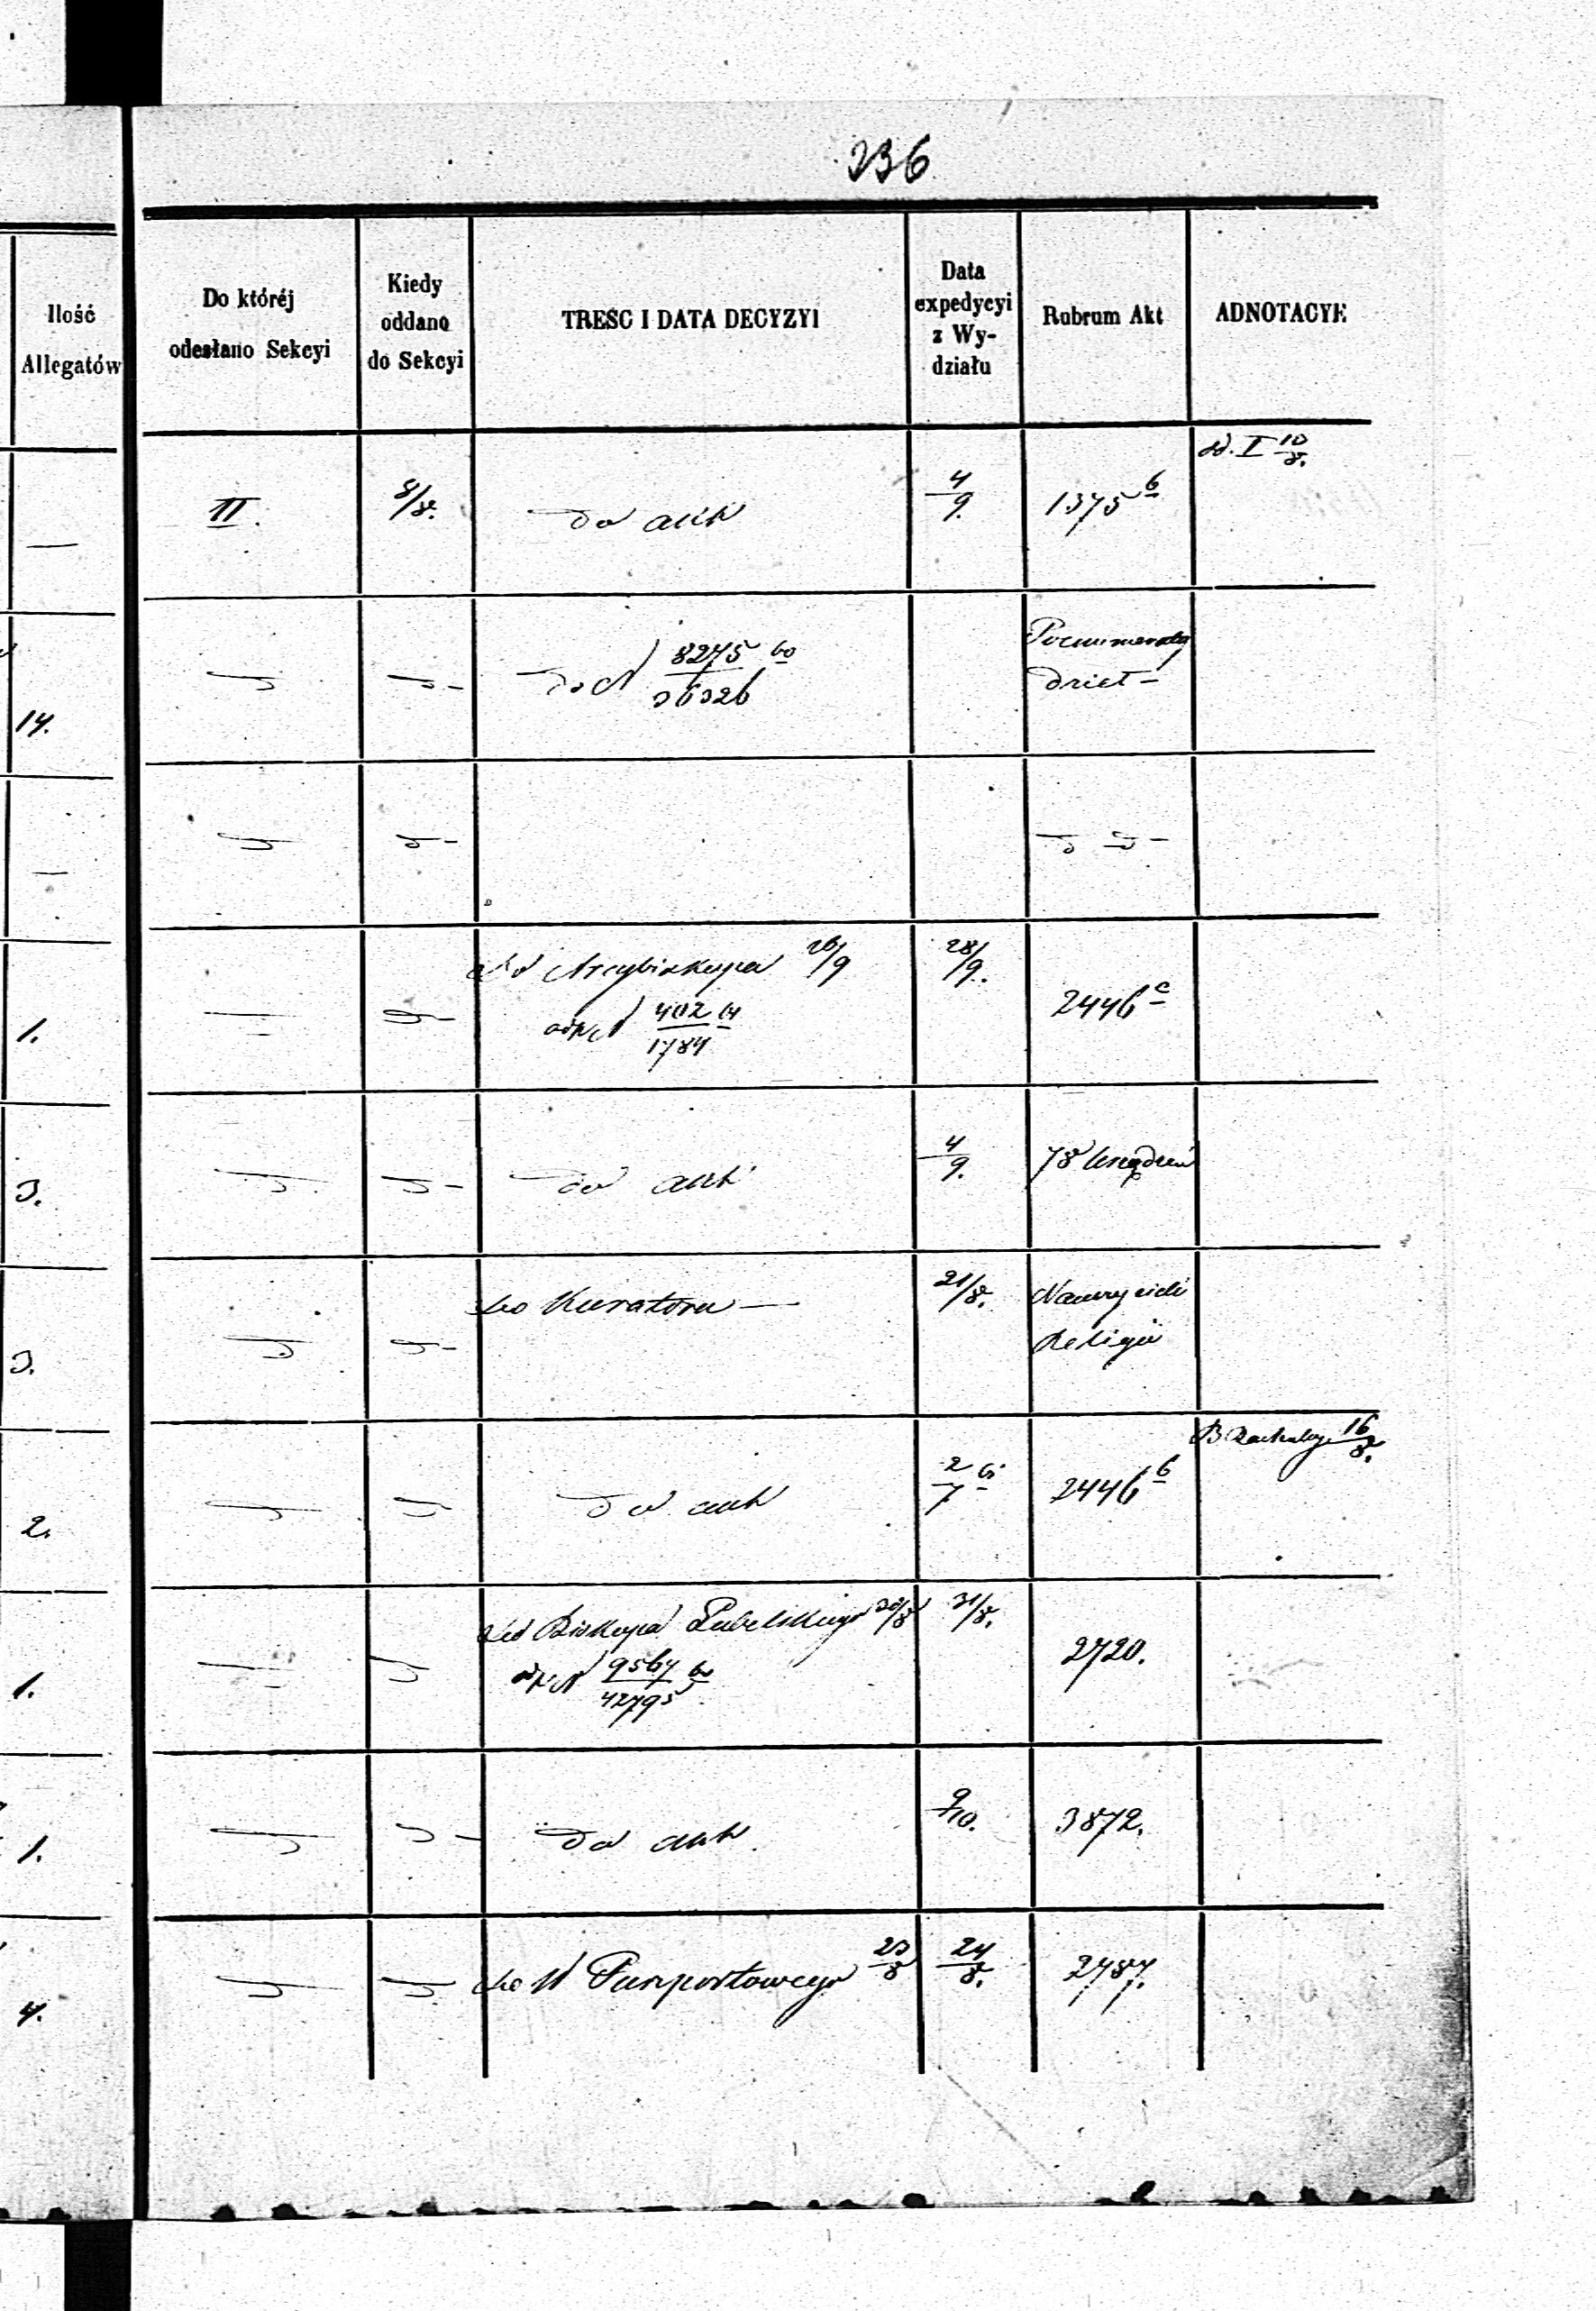 236
Ilość
Allegatów
Do któréj
odesłano Sekcyi
Kiedy
oddano
do Sekcyi
TREŚC I DATA DECYZYI
Data
expedycyi
z Wy-
działu
Rubrum Akt
ADNOTACYE
—
II.
8/8.
do akt
4/9.
1375 b
d. I 10/8.
14.
do N 8275/36326 60
Prenumerata
dzieł —
—
1.
do Arcybiskupa 26/9
odp N 402/1784 61
28/9.
2446 c
3.
do akt
4/9.
78 Urządzeń
3.
do Kuratora —
21/8.
Nauczyciele
Religii
2.
do akt
2/7 61
2446 b
16/8.
1.
do Biskupa Lubelskiego 30/8
odp N 9567/42795 60
31/8.
2720.
1.
do akt.
9/10.
3872.
4.
do W Paszportowego 23/8
24/8.
2787.